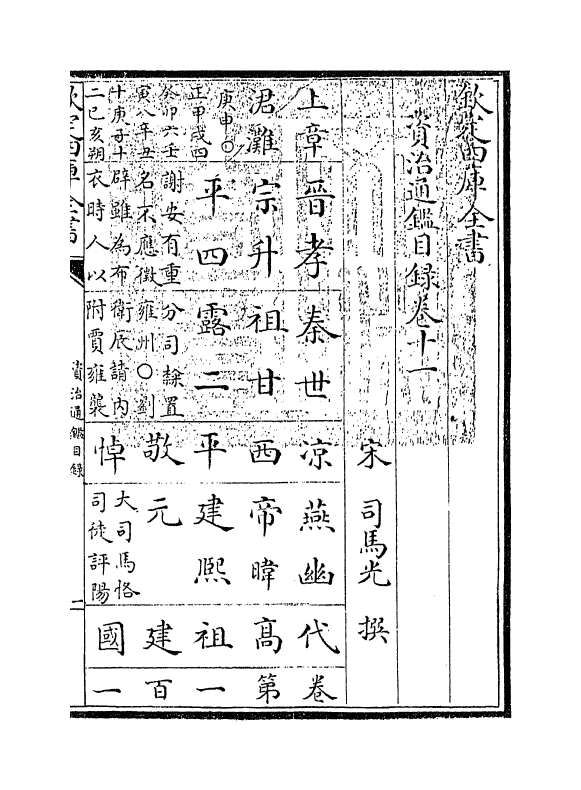 欽定四庫全書
資治通鑑目録卷十一
宋 司馬光 撰
上章 晉孝 秦世 涼 燕幽 代 卷
涒灘 宗升 祖甘 西 帝暐 髙 第
庚申〇
正甲戌四 平四 露二 平 建熙 祖 一
癸卯六壬 謝安有重 分司隸置 敬 元 建 百
寅八辛丑 名不應徵 雍州〇劉
十庚子十 辟雖為布 衛辰請内 悼 大司馬恪 國 一
二己亥朔 衣時人以 附賈雍襲 司徒評陽
欽定四庫全書 資治通鑑目録 二